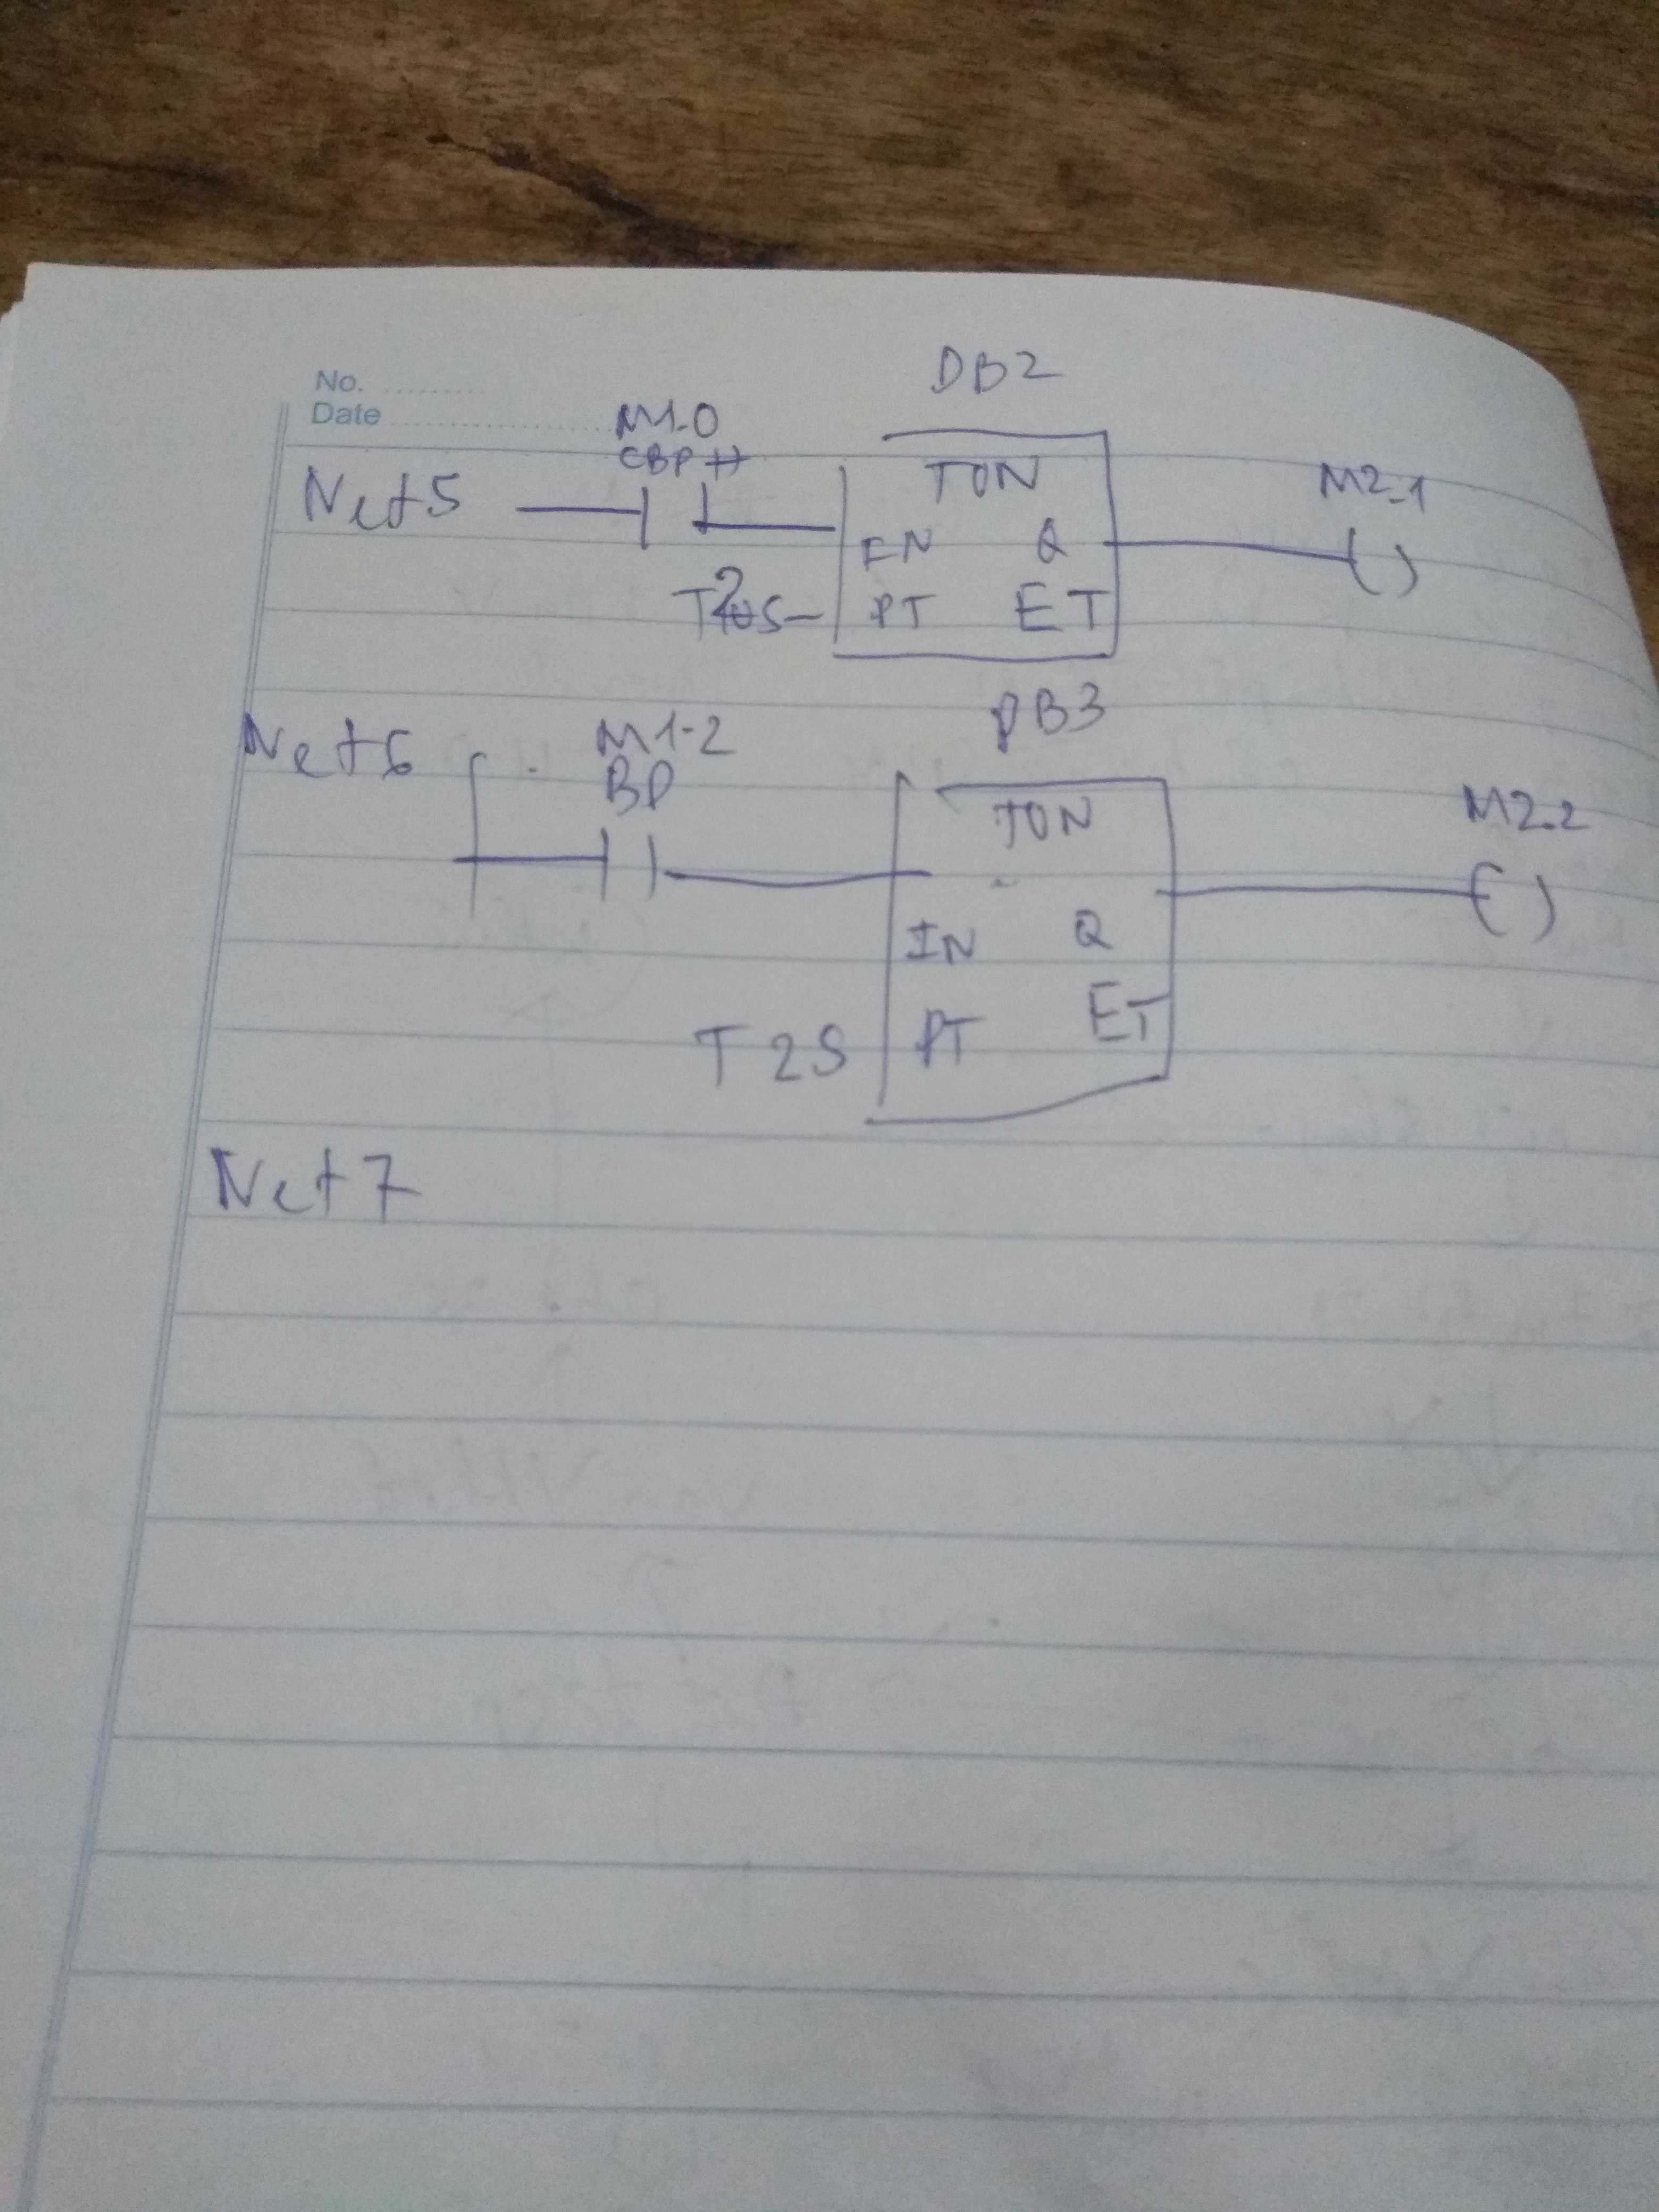 No.
Date
DB2
M1.0
Net5
TON
M2.1
IN Q
PT ET
DB3
Net6
M1-2
BP
TON
M2.2
IN Q
T 2S PT ET
Net7